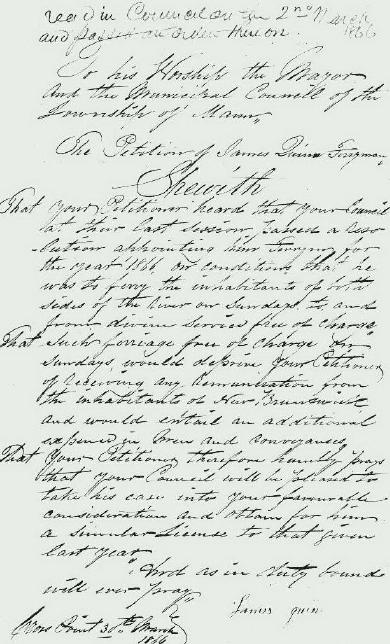 read in Council on the 2nd March 1866
and passed an order thereon.
To his Worship the Mayor
And the Municipal Council of the
Township of Mann,,
The Petition of James Quinn Ferryman
Shewith
That Your Petitioner heard that your Council
at their last session passed a reso
lution appointing him Ferryman for
the year 1866 on condition that he
was to ferry the inhabitants of both
sides of the River on Sundays to and
from divine service free of charge
That such ferreage free of charge on
Sundays, would deprive your Petitioner
of receiving any remuneration from
the inhabitants of New Brunswick
and would entail an additional
expence in men and conveyances,
That Your Petitioner therefore humbly prays
that your Council will be pleased to
take his case into your favourable
consideration and obtain for him
a simular License to that given
last year
And as in duty bound
will ever pray
James quin
Cross Point March
1866